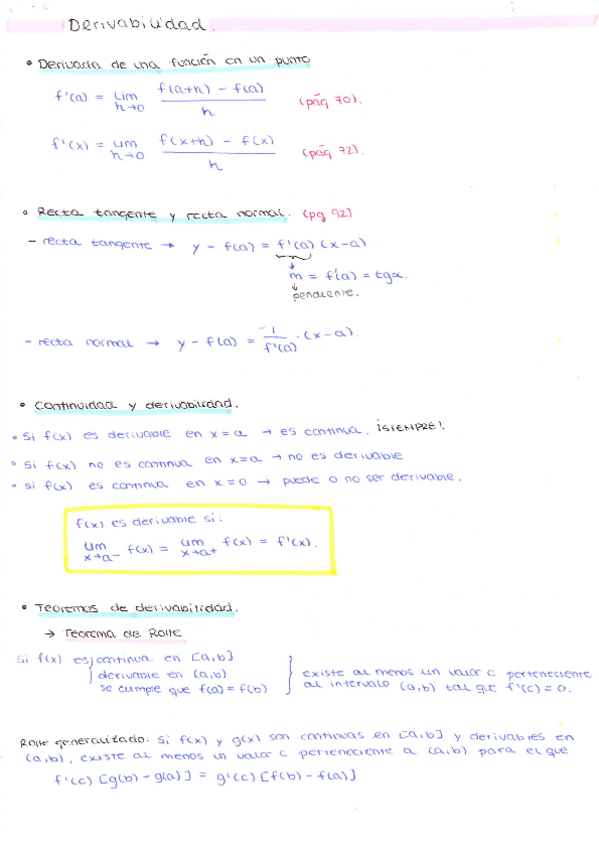 Derivabilidad.
• Derivada de una función en un punto
f'(a) = lim h→0 (f(a+h) - f(a)) / h (pág 70).
f'(x) = lim h→0 (f(x+h) - f(x)) / h (pág 72).
• Recta tangente y recta normal. (pg 92)
- recta tangente → y - f(a) = f'(a) (x-a)
m = f'(a) = tgα.
pendiente.
- recta normal → y - f(a) = -1/f'(a) · (x-a).
• Continuidad y derivabilidad.
• Si f(x) es derivable en x=a → es continua. ¡SIEMPRE!
• Si f(x) no es continua en x=a → no es derivable
• si f(x) es continua en x=0 → puede o no ser derivable.
f(x) es derivable si:
lim x→a- f(x) = lim x→a+ f(x) = f'(x).
• Teoremas de derivabilidad.
→ Teorema de Rolle
Si f(x) es continua en [a,b]
derivable en (a,b)
se cumple que f(a) = f(b)
existe al menos un valor c perteneciente
al intervalo (a,b) tal que f'(c) = 0.
Rolle generalizado. Si f(x) y g(x) son continuas en [a,b] y derivables en
(a,b), existe al menos un valor c perteneciente a (a,b) para el que
f'(c) [g(b) - g(a)] = g'(c) [f(b) - f(a)]